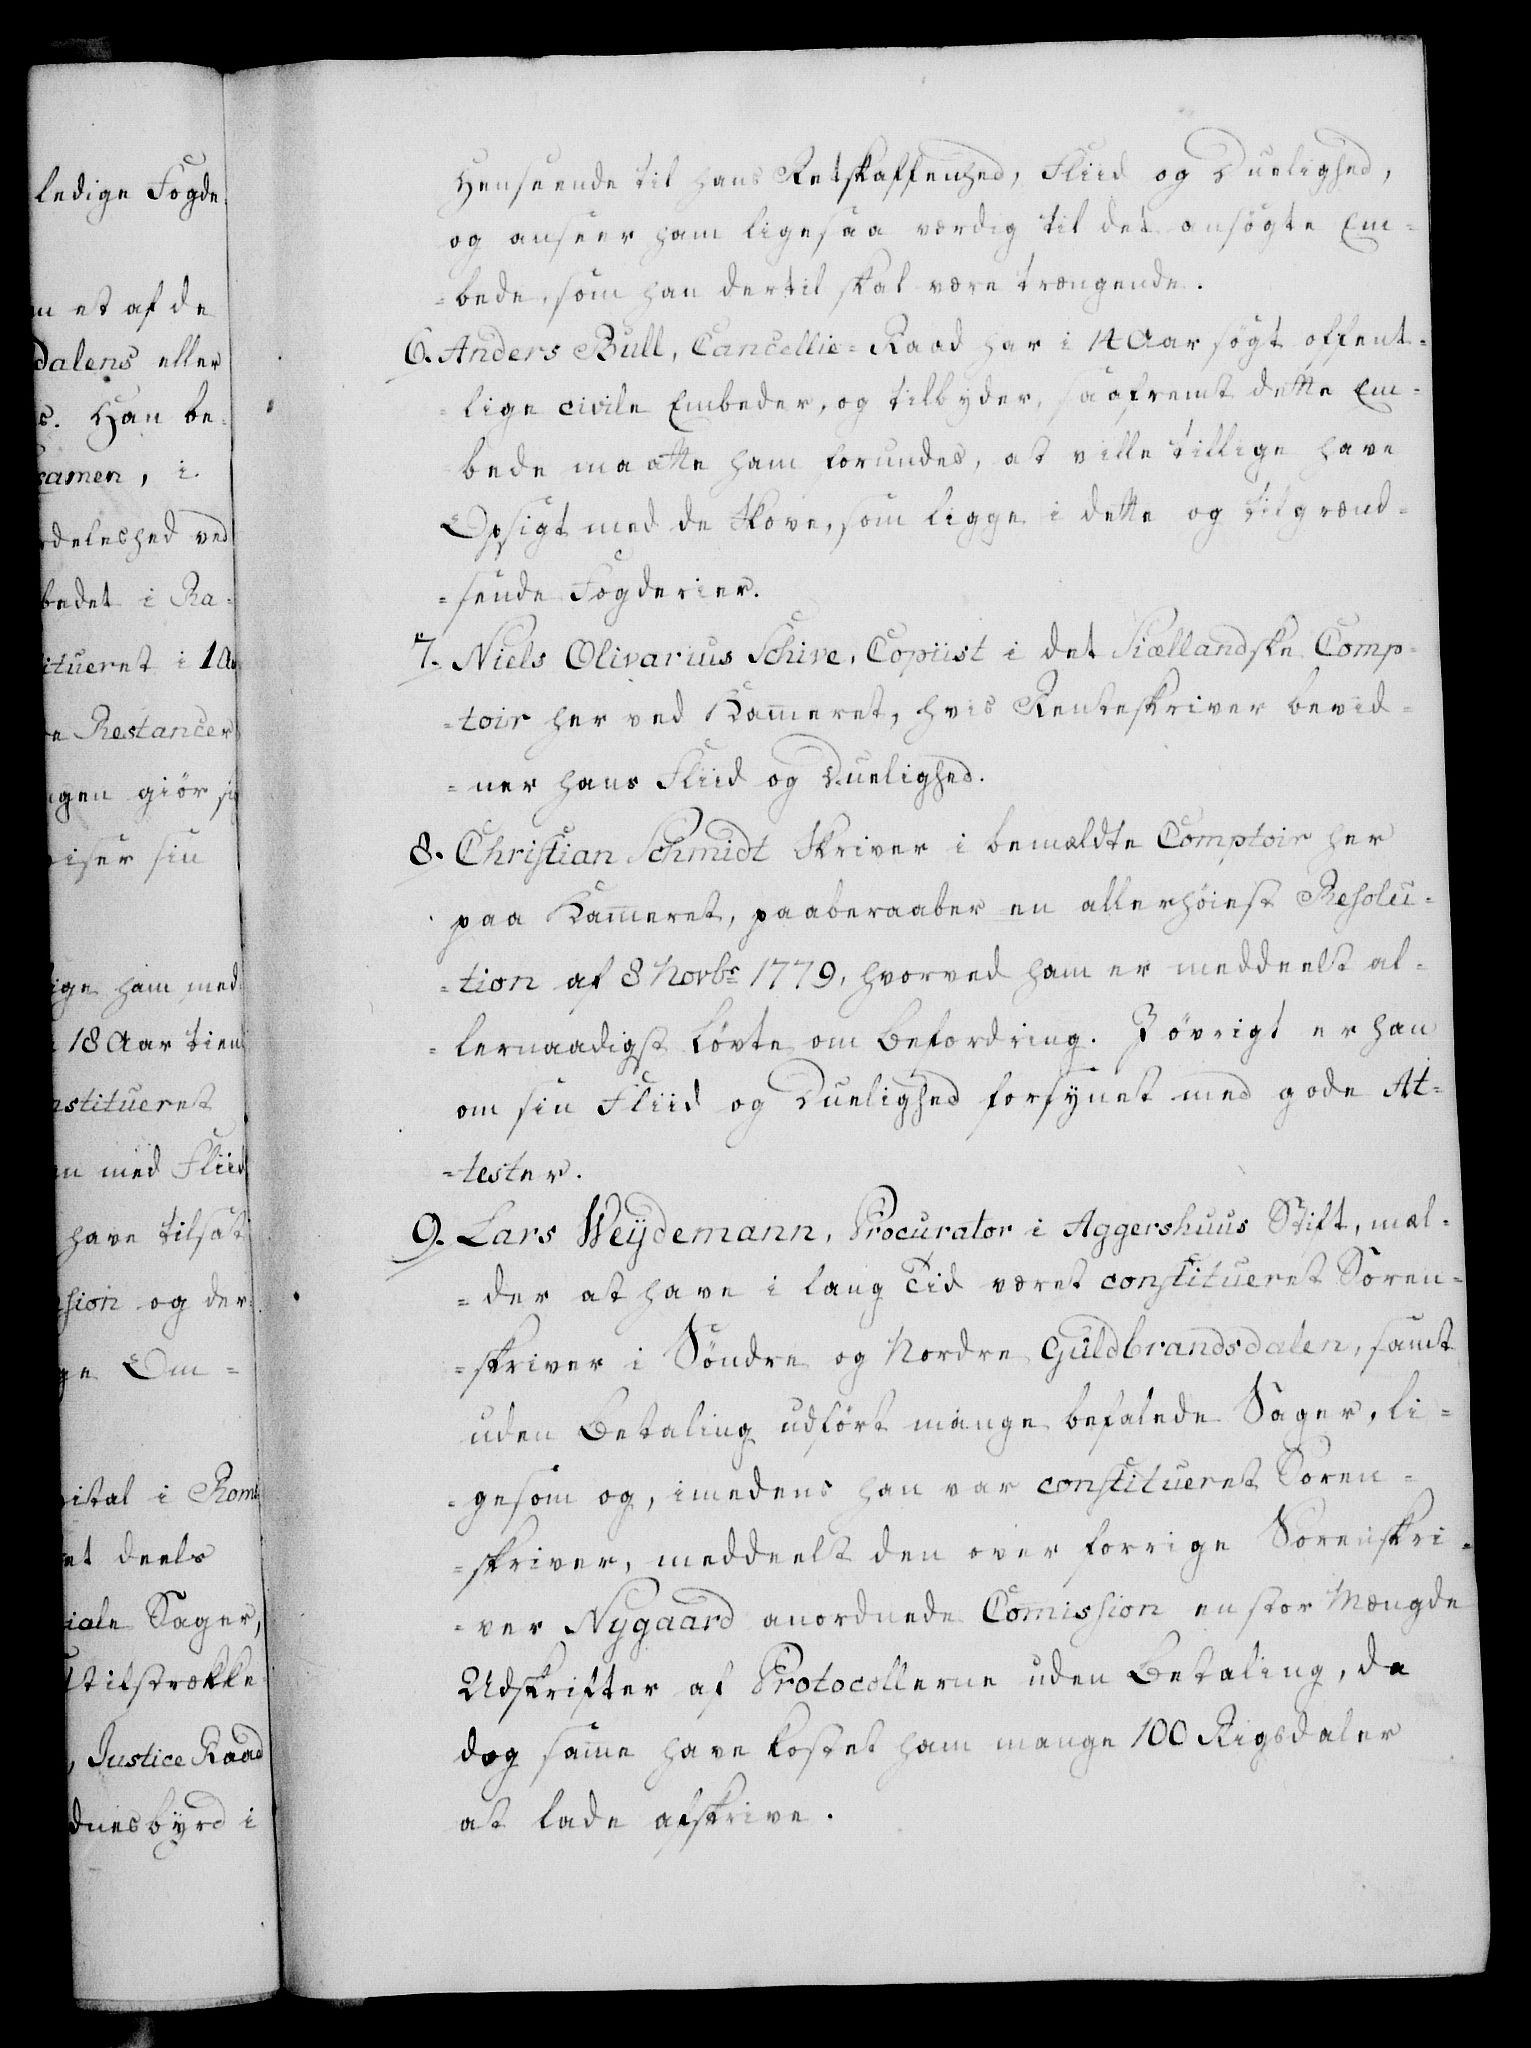 ledige Fogde
n et af de
dalens eller
s. Han be-
xamen, i
rdeleshed ved
bedet i Ra-
itueret i 1 Aa
e Restancer
ngen giör sig
viser sin
lige ham med
18 Aar tient
nstitueret
n med Fliid
have tilsat
nsion og der
ge Om=
pital i Roms
et deels
iale Sager,
tilstrække-
, Justice Raad
dnesbyrd i
Henseende til hans Retskaffenhed, Fliid og Duelighed,
og anseer ham ligesaa værdig til det ansögte Em=
=bede, som han dertil skal være trængende.
6. Anders Bull, Cancellie=Raad har i 14 Aar søgt offent=
=lige civile Embeder, og tilbyder, saafremt dette Em=
=bede maatte ham forundes, at ville tillige have
Opsigt med de Skove, som ligge i dette og tilgrænd=
=sende Fogderier.
7. Niels Olivarius Schive, Copiist i det Siællandske Comp=
=toir her ved Kam̅eret, hvis Renteskriver bevid=
=ner hans Fliid og Duelighed.
8. Christian Schmidt Skriver i bemældte Comptoir her
paa Kam̅eret, paaberaaber en allerhöiest Resolu=
=tion af 8 Novbr 1779, hvorved ham er meddeelt al=
=lernaadigst Løvte om Befordring. I övrigt er han
om sin Fliid og Duelighed forsynet med gode At=
=tester.
9. Lars Weÿdemann, Procurator i Aggershuus Stift, mæl=
=der at have i lang Tid været constitueret Soren=
=skriver i Söndre og Nordre Guldbrandsdalen, samt
uden Betaling udfört mange befalede Sager, li=
=gesom og, imedens han var constitueret Soren=
=skriver, meddeelt den over forrige Sorenskri=
=ver Nygaard anordnede Com̅ission en stor Mængde
Udskrifter af Protocollerne uden Betaling, da
dog sam̅e have kostet ham mange 100 Rigsdaler
at lade afskrive.